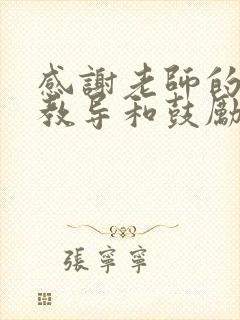 感謝老師的
教导和鼓勵
張寧寧